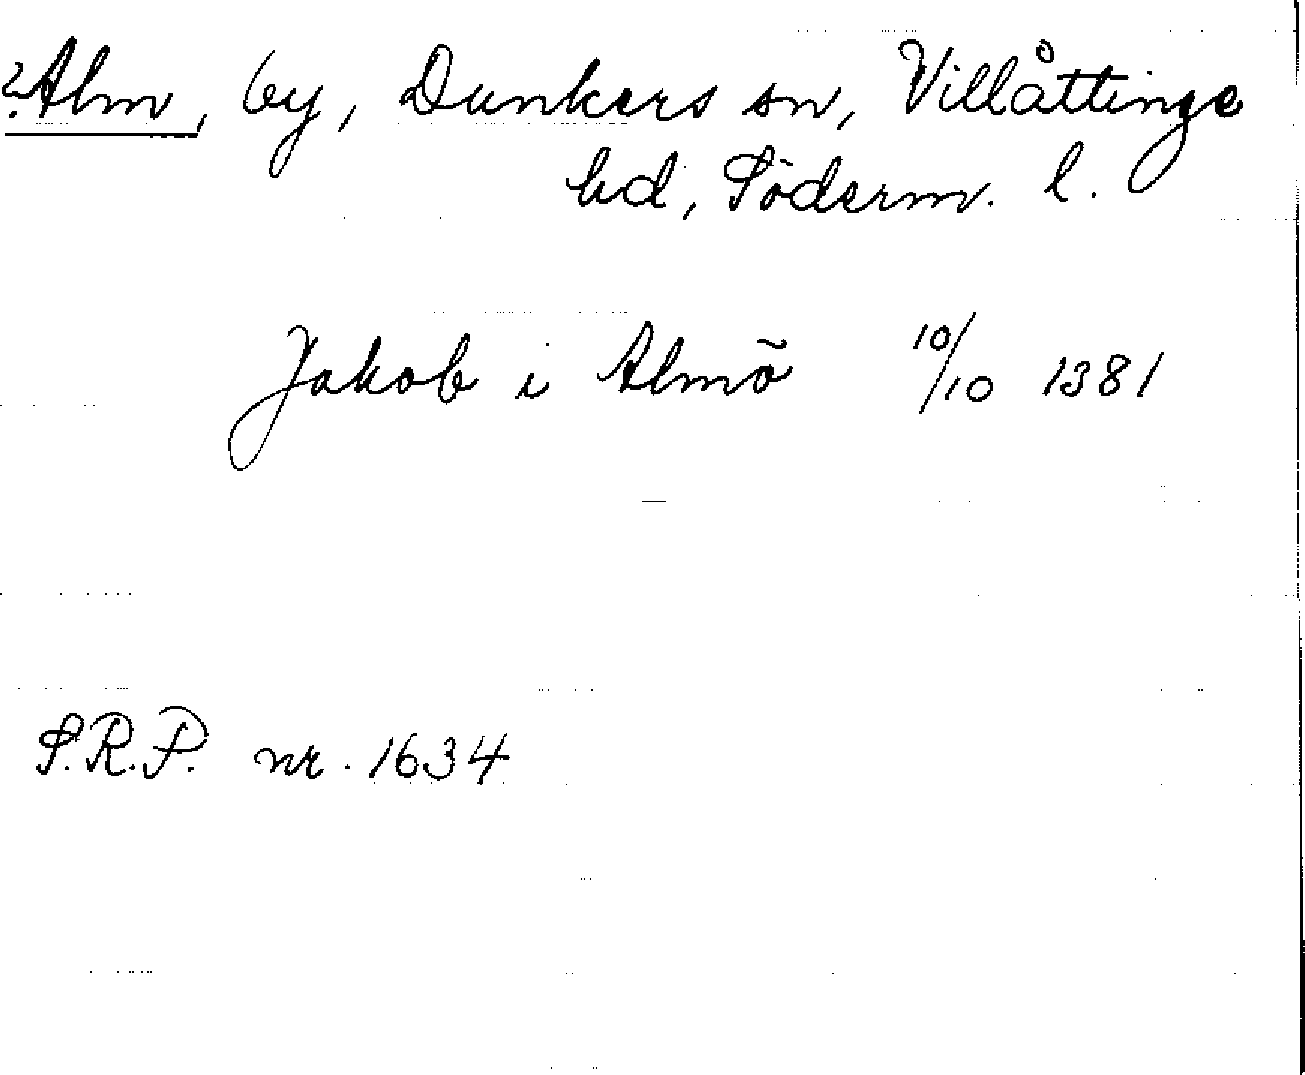 ?Alm, by, Dunkers sn, Villåttinge
hd, Söderm. l.
Jakob i Almö 10/10 1381
S.R.P. nr. 1634